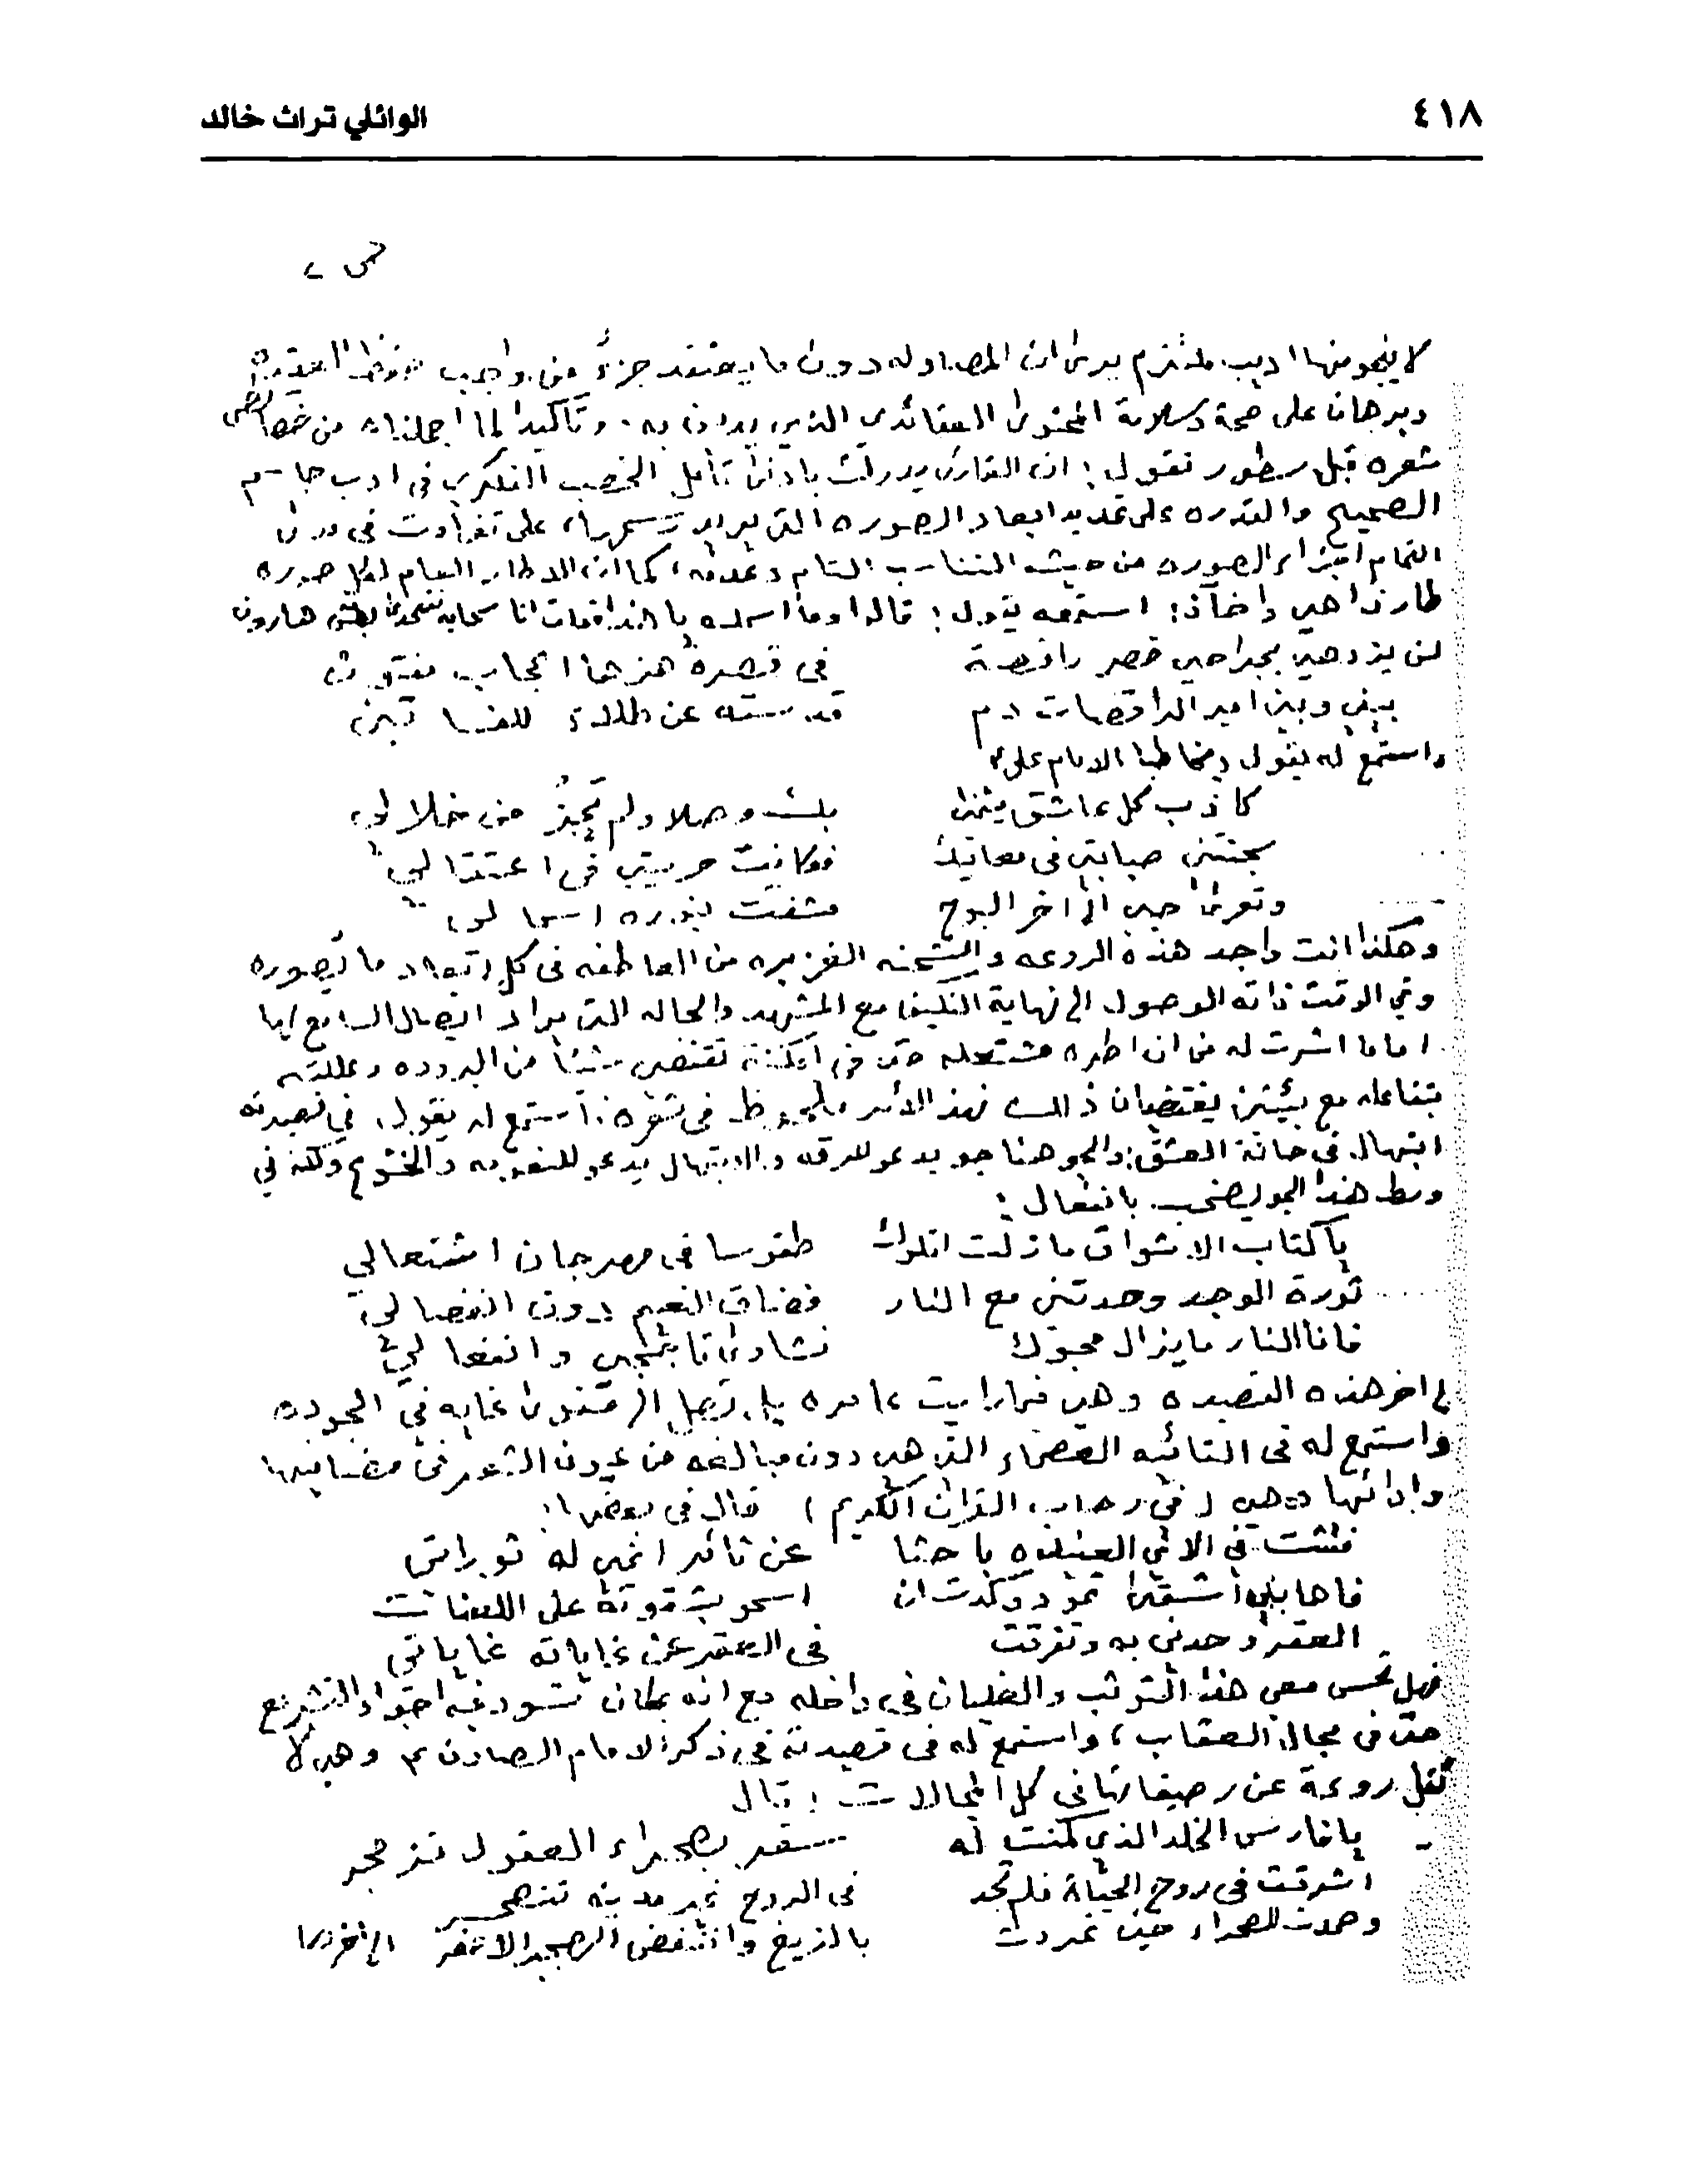 ٤١٨
الوائلي تراث خالد
ص ٢
لا ينجو منها اديب ملتزم يرى ان المصاوله دون ما يعتقد جزءً من واجب
وبرهان على صحة وسلامة المحتوى العقائدي الذي يدان به . وتأكيدا لما اجملناه من خصائص
شعره قبل سطور نقول : ان القارئ يدرك بادنى تأمل الخصب الفكري في ادب جاسم
الصحيح والقدره على تحديد ابعاد الصوره التي يريد رسمها على تفاوت في مدى
التمام اجزاء الصوره من حيث التناسب التام وعدمه ، كما ان الاطار العام لكل صوره
اخاذ : استمعه يقول : قالها وما اسمك يا هذا فقلت انا سحابه تتحدى هارون
لن يزدهي بجراحي خصر راقصة في قصره هزها
بيني وبين امير الراقصات دم قدسته عن
واستمع له يقول مخاطبا الامام علي ع
كاذب كل عاشق يتمنى بك وصلا ولم يجز من خلالي
سجنتني صبابتي في معانيك فكانت حريتي في اعتقالي
وتعرى حبي الى اخر البوح فشفت بنوره اسمالي
وهكذا انت واجد هذه الروعه والشحنه الغزيره من العاطفه في كل ابعاد ما يصوره
وفي الوقت ذاته الوصول الى نهاية التكيف مع المشهد والحاله التي يراد ايصال السامع لها
اما ما اشرت له من ان اطره مشتعله حتى في امكنة تقتضي شيئا من البروده وعللته
بتفاعله مع بيئتين يقتضيان ذلك فهذا الأمر ملحوظ في شعره : استمع له يقول في قصيدته
ابتهال في حانة العشق : والجو هنا جو يدعو للرقه والابتهال يدعو للعذوبه والخشوع ولكنه في
وسط هذا الجو يصخب بانفعال :
يا كتاب الاشواق ما زلت اتلوك طقوسا في مهرجان اشتعالي
ثورة الوجد وحدتني مع النار فضاق النعيم دون انفصالي
فانا النار ما يزال محبوك نشاوى تأججي وانفعالي
الى اخر هذه القصيده وهي فيما رايت عامره بل تصل الى مستوى غايه في الجوده
واستمع له في التائيه العصماء التي هي دون مبالغه من عيون الشعر في مضامينها
وادائها وهي ( في رحاب القران الكريم ) قال في بعضها :
فتشت في الآي باحثا عن ثائر انمي له ثوراتي
فاجابني أشقى ثمود وكدت ان اسمو بشقوته على اللعنات
العقر وحدني به وتفرقت في العقر عن غاياته غاياتي
فهل تحس معي هذا التوثب والغليان في داخله مع انه بمكان تسود فيه اجواء التشريع
حتى في مجال العقاب ، واستمع له في قصيدته في ذكرى الامام الصادق ع وهي لا
تقل روعة عن رصيفاتها في كل المجالات : قال
يا فارس الخلد الذي كمنت له سقر بصحراء العقول تزمجر
اشرقت في روح الحياة فلم تجد في الروح غير مدينه تتصحر
وصمدت للصحراء حين تمردت بالزيغ وانتفض الهجير الاصفر الى اخرها